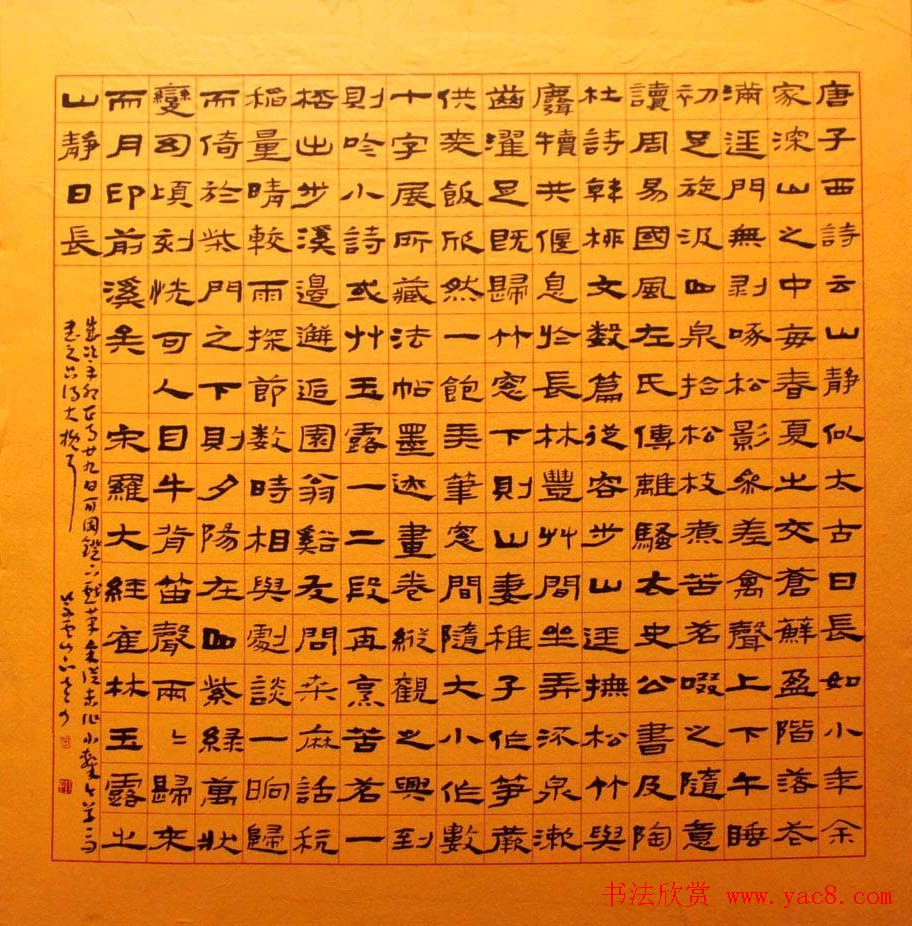 唐子西詩云山靜似太古日長如小年余
家深山之中每春夏之交蒼蘚盈階落花
滿逕門無剥啄松影參差禽聲上下午睡
初足旋汲山泉拾松枝煮苦茗啜之隨意
讀周易國風左氏傳離騷太史公書及陶
杜詩韓柳文數篇從容步山逕撫松竹與
麛犢共偃息於長林豐艸間坐弄流泉漱
齒濯足既歸竹窻下則山妻稚子作筍蕨
供麥飯欣然一飽弄筆窻間隨大小作數
十字展所藏法帖墨迹畫卷縱觀之興到
則吟小詩或艸玉露一二段再烹苦茗一
桮出步溪邊邂逅園翁谿友問桑麻話秔
稻量晴較雨探節數時相與劇談一晌歸
而倚於柴門之下則夕陽在山紫緑萬狀
變幻頃刻恍可人目牛背笛聲兩〻歸來
而月印前溪矣 宋羅大經崔林玉露之
山靜日長
歲次辛卯正月廿九日
书法欣赏 www.yac8.com